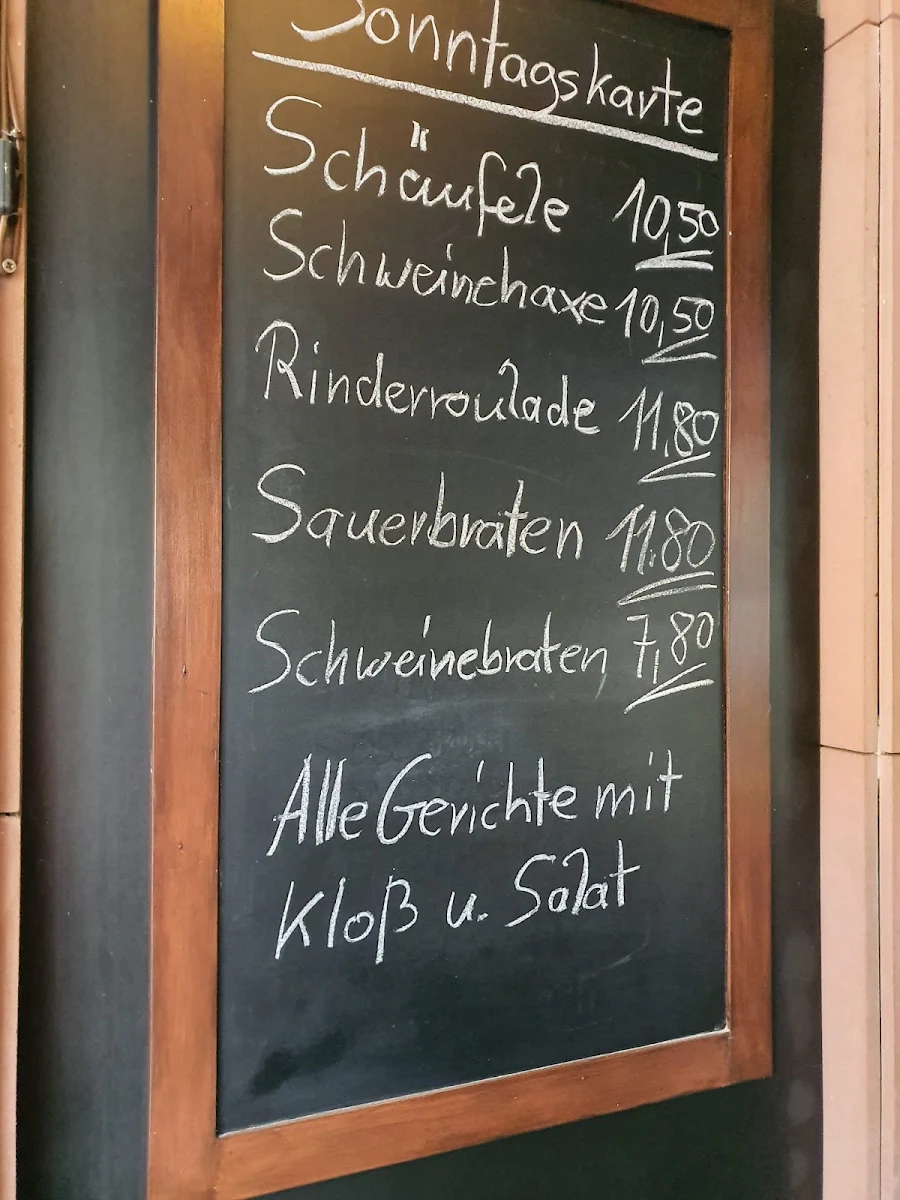 Sonntagskarte
Schäufele 10,50
Schweinehaxe 10,50
Rinderroulade 11,80
Sauerbraten 11.80
Schweinebraten, 7,80
Alle Gerichte mit
Kloß u. Salat